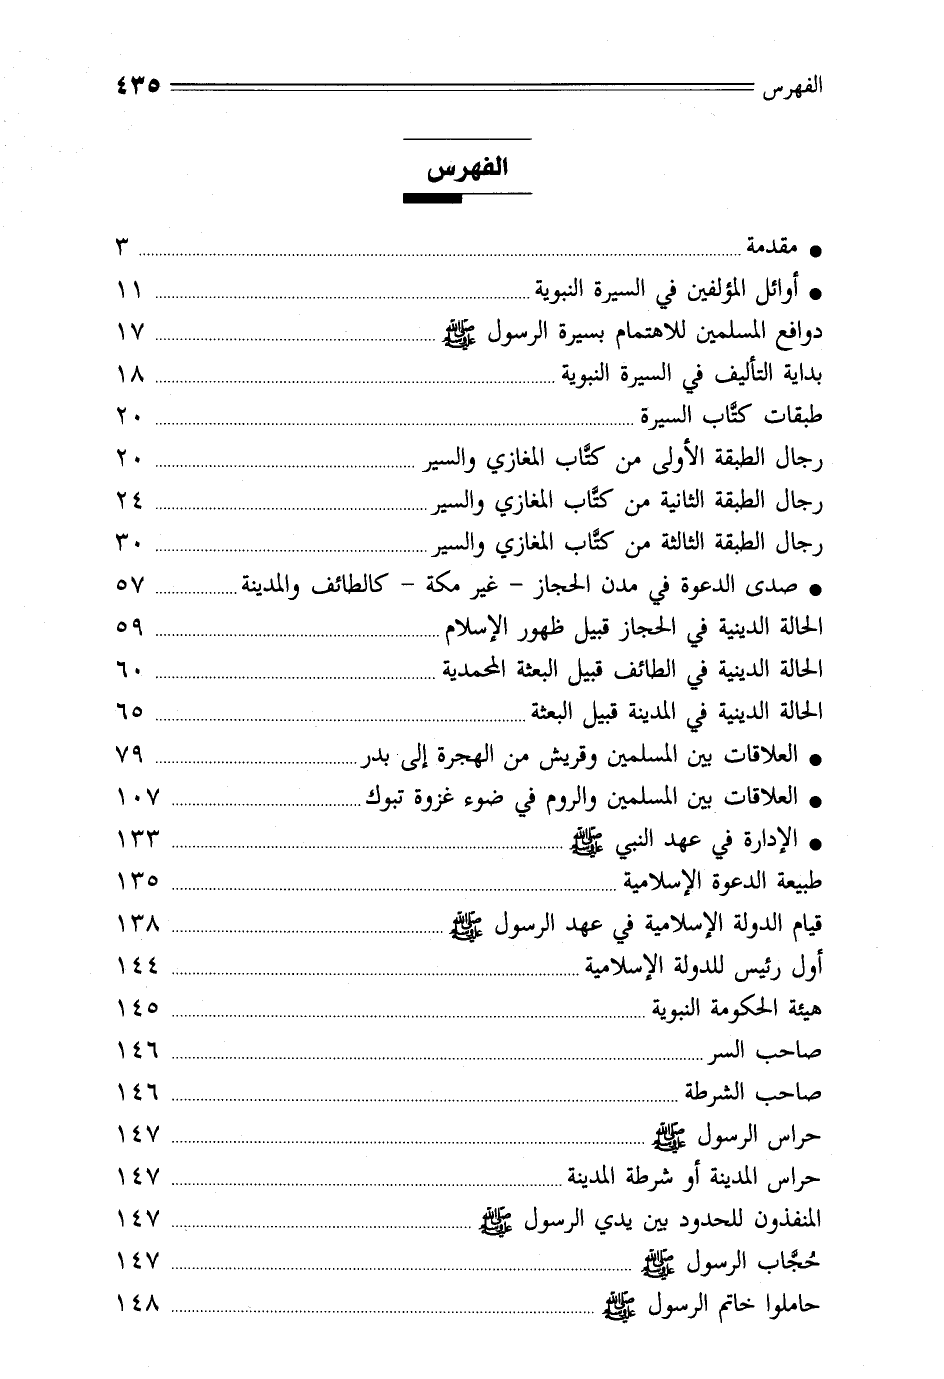 الفهرس ٤٣٥
الفهرس
● مقدمة ........ ٣
● أوائل المؤلفين في السيرة النبوية ........ ١١
دوافع المسلمين للاهتمام بسيرة الرسول ﷺ ........ ١٧
بداية التأليف في السيرة النبوية ........ ١٨
طبقات كتَّاب السيرة ........ ٢٠
رجال الطبقة الأولى من كتَّاب المغازي والسير ........ ٢٠
رجال الطبقة الثانية من كتَّاب المغازي والسير ........ ٢٤
رجال الطبقة الثالثة من كتَّاب المغازي والسير ........ ٣٠
● صدى الدعوة في مدن الحجاز - غير مكة - كالطائف والمدينة ........ ٥٧
الحالة الدينية في الحجاز قبيل ظهور الإسلام ........ ٥٩
الحالة الدينية في الطائف قبيل البعثة المحمدية ........ ٦٠
الحالة الدينية في المدينة قبيل البعثة ........ ٦٥
● العلاقات بين المسلمين وقريش من الهجرة إلى بدر ........ ٧٩
● العلاقات بين المسلمين والروم في ضوء غزوة تبوك ........ ١٠٧
● الإدارة في عهد النبي ﷺ ........ ١٣٣
طبيعة الدعوة الإسلامية ........ ١٣٥
قيام الدولة الإسلامية في عهد الرسول ﷺ ........ ١٣٨
أول رئيس للدولة الإسلامية ........ ١٤٤
هيئة الحكومة النبوية ........ ١٤٥
صاحب السر ........ ١٤٦
صاحب الشرطة ........ ١٤٦
حراس الرسول ﷺ ........ ١٤٧
حراس المدينة أو شرطة المدينة ........ ١٤٧
المنفذون للحدود بين يدي الرسول ﷺ ........ ١٤٧
حُجَّاب الرسول ﷺ ........ ١٤٧
حاملوا خاتم الرسول ﷺ ........ ١٤٨